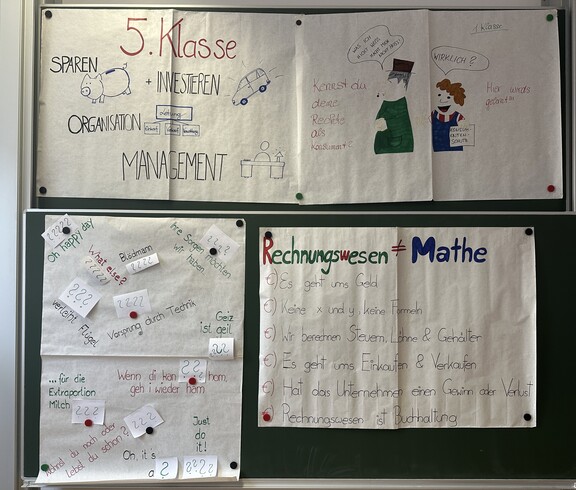 5. Klasse
SPAREN
+ INVESTIEREN
ORGANISATION
MANAGEMENT
Kennst du
deine
Rechte
als
Konsument?
WAS ICH
NICHT WEISS
1. Klasse
WIRKLICH?
Hier wirds
KONSUM-
ENTEN-
SCHUTZ
oh happy day
????
What else?
?????
Blödmann
????
Ihre Sorgen möchten
wir haben
????
???
verleiht Flügel
????
Vorsprung durch Technik
Geiz
ist geil
??
... für die
Extraportion
Milch
???
Wenn di kan ??? ham,
geh i wieder ham
???
Wohnst du noch oder
lebst du schon?
Just
do
it!
????
Oh, it's
a ?
Rechnungswesen ≠ Mathe
€) Es geht ums Geld
€) Keine x und y, keine Formeln
€) Wir berechnen Steuern, Löhne & Gehälter
€) Es geht ums Einkaufen & Verkaufen
€) Hat das Unternehmen einen Gewinn oder Verlust
€) Rechnungswesen ist Buchhaltung